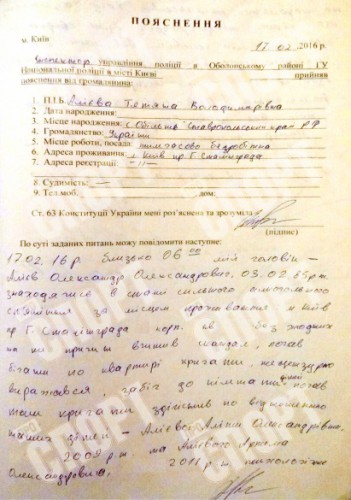 ПОЯСНЕННЯ
м. Київ
17.02 2016 р.
Інспектор управління поліції в Оболонському районі ГУ
Національної поліції в місті Києві прийняв
пояснення від громадянина:
1. П.І.Б. Алієва Тетяна Володимирівна
2. Дата народження:
3. Місце народження: Ставропольський край РФ
4. Громадянство: України
5. Місце роботи, посада тимчасово безробітна
6. Адреса проживання: м. Київ пр. Г. Сталінграда
7. Адреса реєстрації: -//-
8. Судимість: —
9. Тел.моб. дом:
Ст. 63 Конституції України мені роз'яснена та зрозуміла
(підпис)
По суті заданих питань можу повідомити наступне:
17.02.16 р. близько 06 00 мій чоловік –
Алієв Олександр Олександрович, 03.02.85 р.н.
знаходячись в стані сильного алкогольного
сп'яніння за місцем проживання м. Київ
пр. Г. Сталінграда корп. кв без жодних
на те причин вчинив скандал, почав
бігати по квартирі кричати, нецензурно
виражався, забіг до кімнати почав
там кричати здійснив по відношенню
наших дітей – Алієвої Аліни Олександрівни
2008 р.н. та Алієвого Артема
Олександровича 2011 р.н.
ПРО СПОРТ